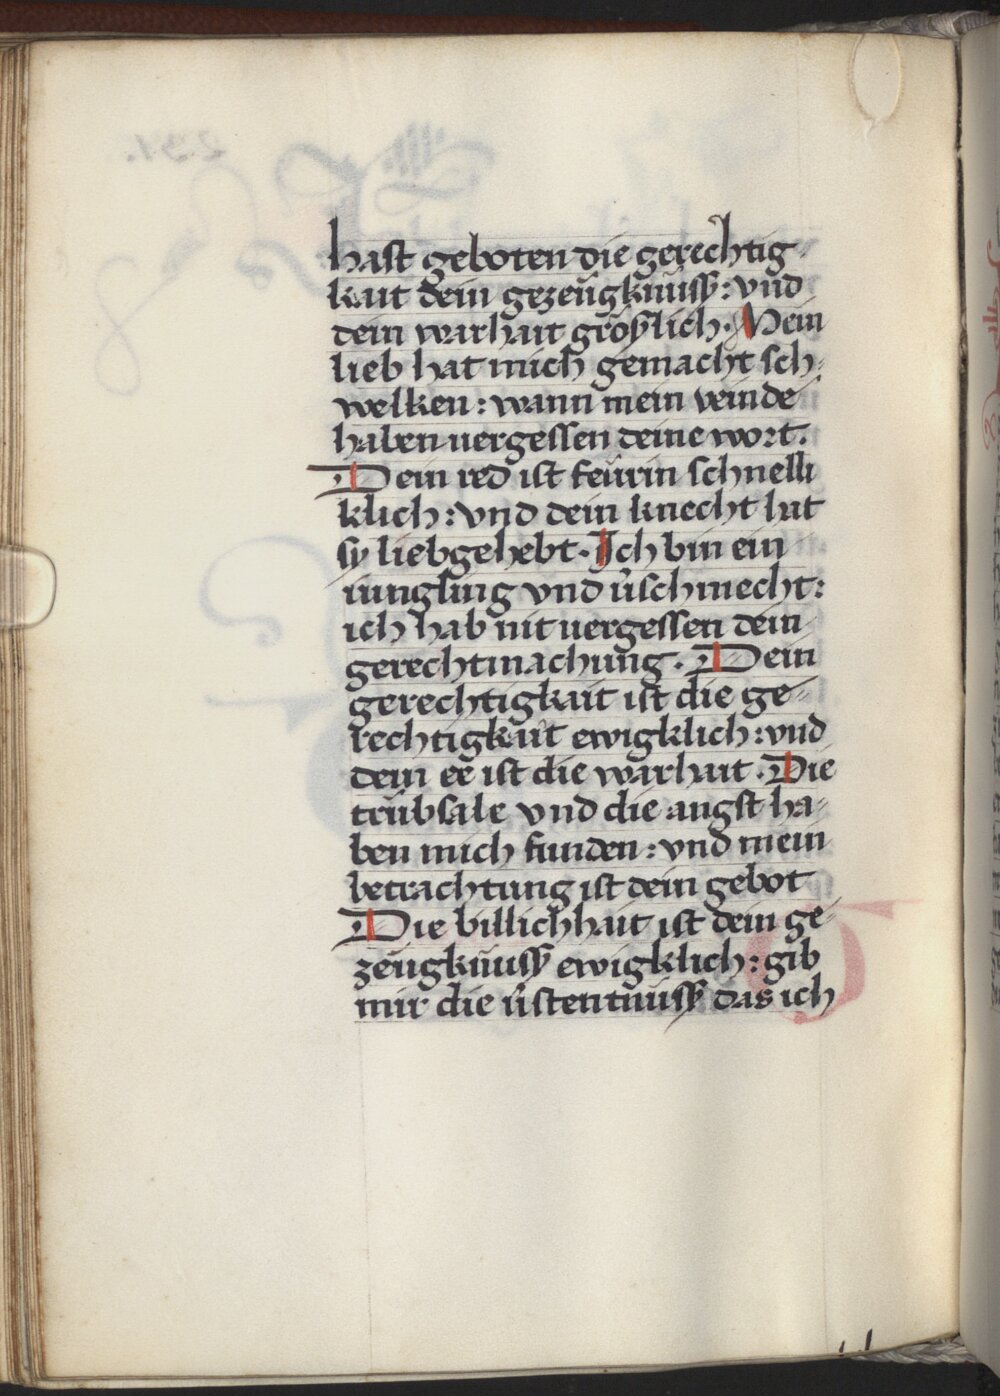 hast geboten die gerechtig
kait dein gezeügknüssz: vnd
dein warhait größlich. Mein
lieb hat mich gemacht sch-
welken: wann mein veinde
haben uergessen deine wort.
Dein red ist feürin schnelli
klich: vnd dein knecht hat
sy liebgehebt. Ich bin ein
iungling vnd üschmecht:
ich hab nit uergessen dein
gerechtmachung. Dein
gerechtigkait ist die ge-
rechtigkait ewigklich: vnd
dein ee ist die warhait. Die
trübsale vnd die angst ha-
ben mich funden: vnd mein
betrachtung ist dein gebot
Die billichhait ist dein ge-
zeügknüssz ewigklich: gib
mir die üstentnüssz das ich